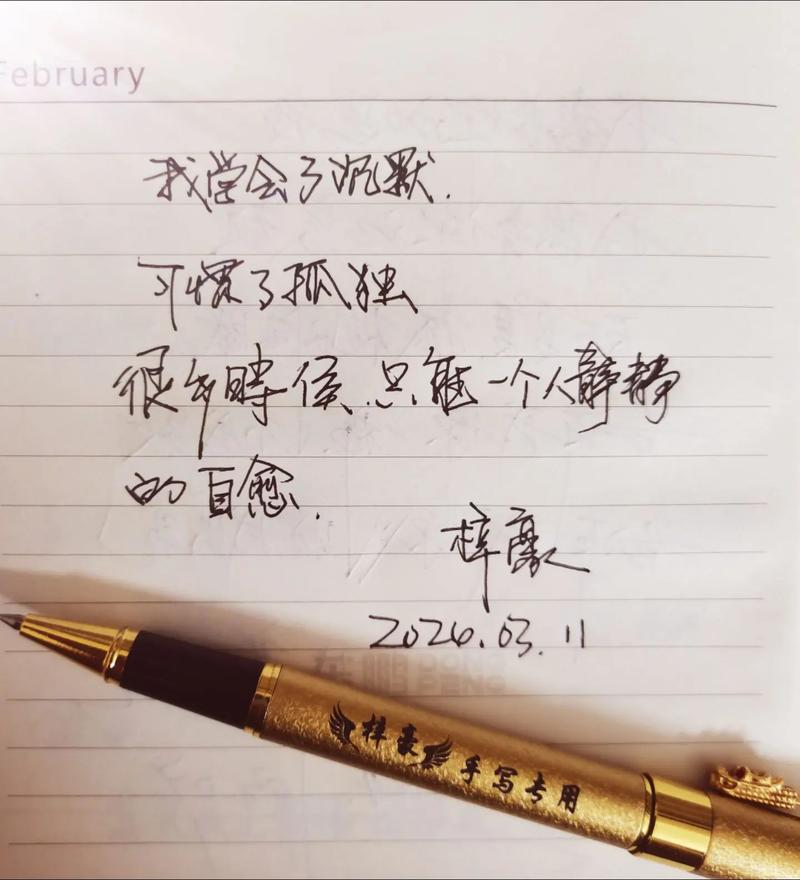 February
我学会了沉默.
习惯了孤独
很多時候.只能一个人静静
的自愈.
梓豪
2024.03.11
梓豪 手写专用